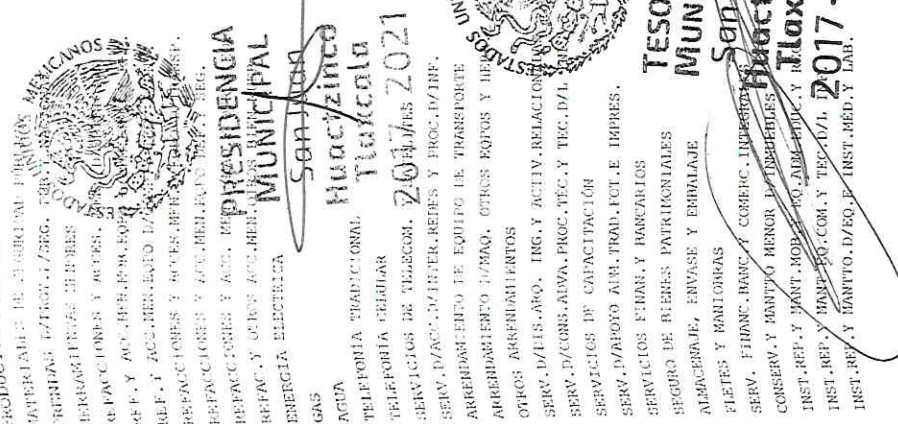 MATERIALES DE SEGURIDAD PUBLICA
PRENDAS D/PROT.P/SEG.
HERRAMIENTAS MENORES
REFACCIONES Y ACCES.
REF.Y ACC.MEN.
REF.Y ACC.MEN.EQPO D/
REFACCIONES Y ACCES.MEN.
REFACCIONES Y ACC.MEN.EQPO DEF.Y SEG.
REFACCIONES Y ACC.
REFAC. Y OTROS ACC.MEN.OTROS
ENERGÍA ELECTRICA
GAS
AGUA
TELEFONÍA TRADICIONAL
TELEFONÍA CELULAR
SERVICIOS DE TELECOM.
SERV.D/ACC.D/INTER.REDES Y PROC.D/INF.
ARRENDAMIENTO DE EQUIPO DE TRANSPORTE
ARRENDAMIENTO D/MAQ. OTROS EQPOS Y
OTROS ARRENDAMIENTOS
SERV. D/DIS.ARQ. ING.Y ACTIV.RELACION
SERV.D/CONS.ADVA.PROC.TEC.Y TEC.D/L
SERVICIOS DE CAPACITACIÓN
SERV.D/APOYO ADM.TRAD.FOT.E IMPRES.
SERVICIOS FINAN.Y BANCARIOS
SEGURO DE BIENES PATRIMONIALES
ALMACENAJE, ENVASE Y EMBALAJE
FLETES Y MANIOBRAS
SERV. FINANC.BANC.Y COMERC.
CONSERV.Y MANTTO MENOR D/INMUEBLES
INST.REP.Y MANT.MOB.Y EQ.ADM.
INST.REP.Y MANTT EQ COM.Y TEC.D/L
INST.REP.Y MANTTO.D/EQ.E INST.MED.Y LAB.
MEXICANOS
PRESIDENCIA
MUNICIPAL
San Juan
Huactzinco
Tlaxcala
2017 2021
ESTADOS UN
TESO
MUN
San
Huact
Tlax
2017 -